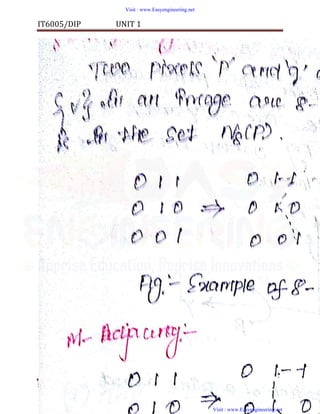 Visit : www.Easyengineering.net
IT6005/DIP UNIT 1
Two pixels 'p' and 'q'
{v} in an Image are 8-
is in the set N8(P).
0 1 1 0 1-1
0 1 0 ⇒ 0 1 0
0 0 1 0 0 1
Fig:- Example of 8-
M- Adjacency:-
0 1 1 0 1--1
0 1 0 ⇒ 0 1 0
Visit : www.Easyengineering.net